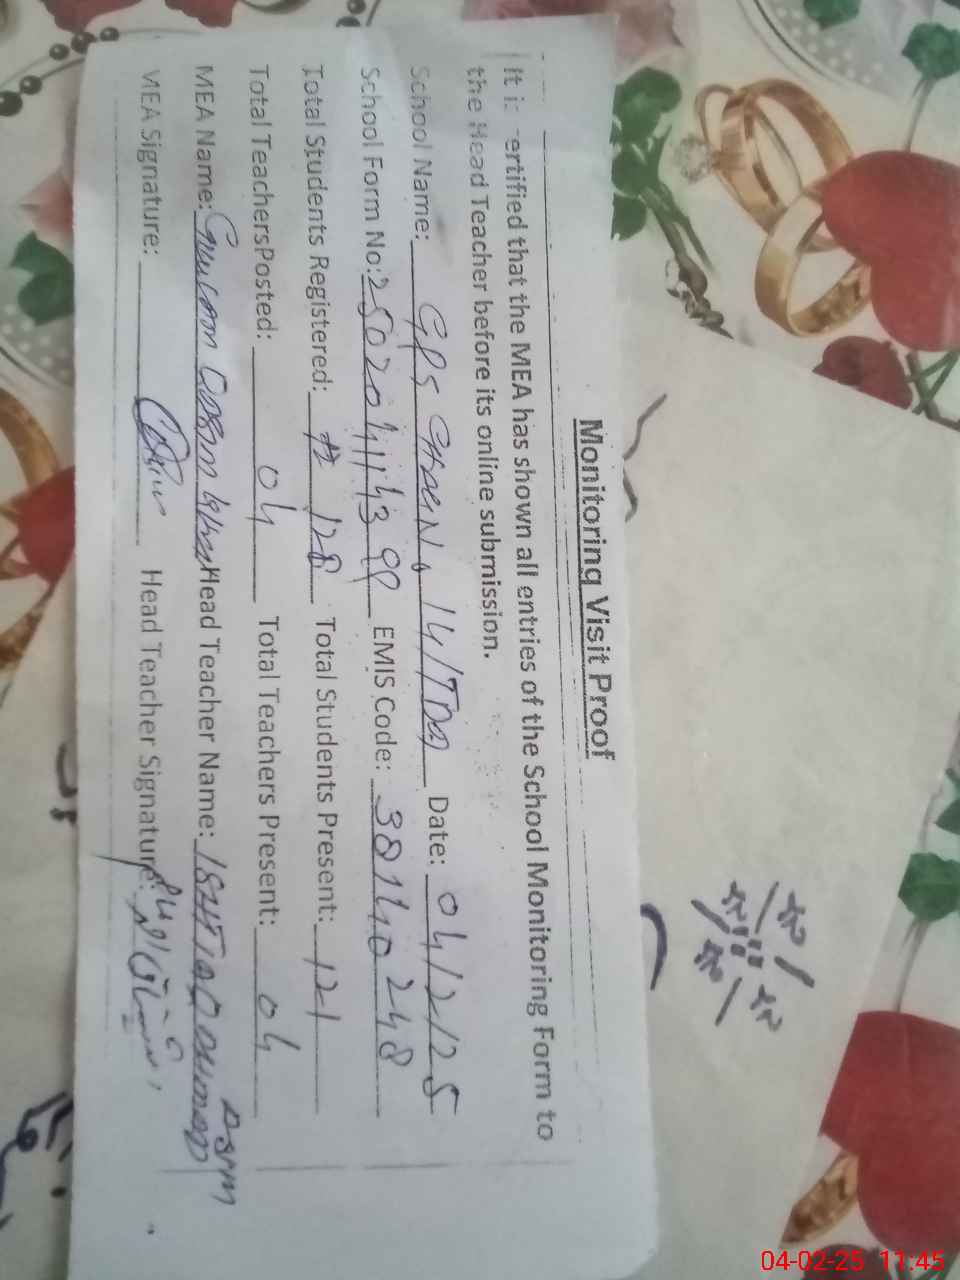 Monitoring Visit Proof
It is certified that the MEA has shown all entries of the School Monitoring Form to
the Head Teacher before its online submission.
School Name: GPS Chak No 14/TDA Date: 04/2/25
School Form No: EMIS Code: 38140248
Total Students Registered: 128 Total Students Present: 121
Total TeachersPosted: 04 Total Teachers Present: 04
MEA Name: Head Teacher Name: ISHTIAQ AHMAD
MEA Signature: Head Teacher Signature:
04-02-25 11:45